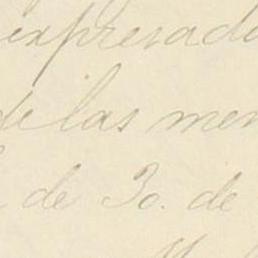 expresado
de las men
de 3o. de